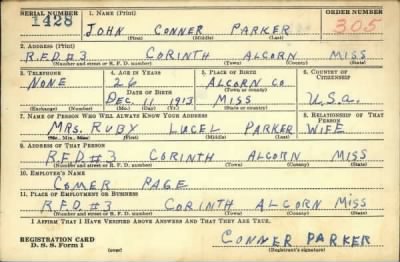 SERIAL NUMBER 1. NAME (Print) ORDER NUMBER
1428 JOHN CONNER PARKER 305
(First) (Middle) (Last)
2. ADDRESS (Print)
R.F.D.#3 CORINTH ALCORN MISS
(Number and street or R. F. D. number) (Town) (County) (State)
3. TELEPHONE 4. AGE IN YEARS 5. PLACE OF BIRTH 6. COUNTRY OF CITIZENSHIP
NONE 26 ALCORN CO.
DATE OF BIRTH (Town or county)
DEC. 11 1913 MISS U.S.A.
(Exchange) (Number) (Mo.) (Day) (Yr.) (State or country)
7. NAME OF PERSON WHO WILL ALWAYS KNOW YOUR ADDRESS 8. RELATIONSHIP OF THAT PERSON
MRS. RUBY LUCEL PARKER WIFE
(Mr., Mrs., Miss) (First) (Middle) (Last)
9. ADDRESS OF THAT PERSON
R.F.D.#3 CORINTH ALCORN MISS
(Number and street or R. F. D. number) (Town) (County) (State)
10. EMPLOYER'S NAME
COMER PAGE
11. PLACE OF EMPLOYMENT OR BUSINESS
R.F.D.#3 CORINTH ALCORN MISS
(Number and street or R. F. D. number) (Town) (County) (State)
I AFFIRM THAT I HAVE VERIFIED ABOVE ANSWERS AND THAT THEY ARE TRUE.
REGISTRATION CARD CONNER PARKER
D. S. S. Form 1 (over) (Registrant's signature)